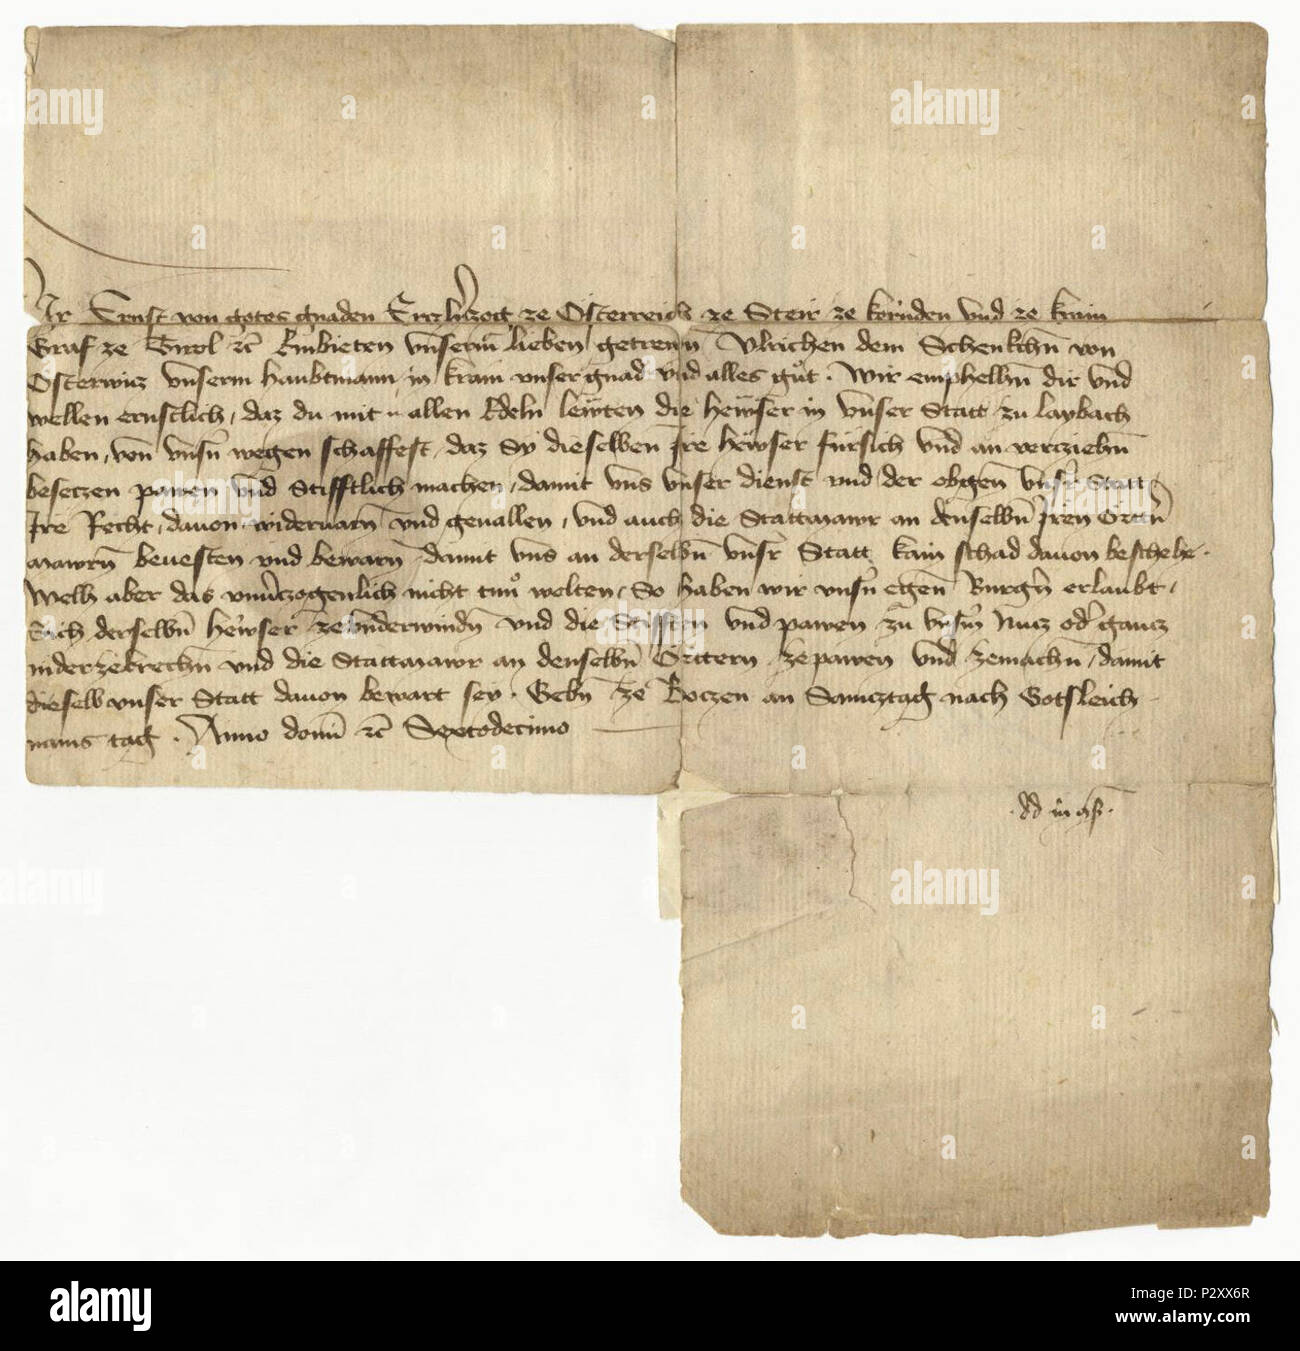 Wir Ernst von gotes gnaden Erczherczog ze Österreich ze Steir ze kernden vnd ze krain
Graf ze Tirol etc Embieten vnserm lieben getrewn Vlrichen dem Schenkchn von
Osterwicz vnserm haubtmann in krain vnser gnad vnd alles gůt. Wir emphelhn dir vnd
wellen ernstlich, daz du mit allen Edeln lewten die hewser in vnser Statt zu laybach
haben, von vnsn wegen schaffest, daz Sy dieselben Ire hewser fursich vnd an vercziehn
beseczen pawen vnd Stifftlich machen, damit vns vnser dienst vnd der obgen vnsr Statt
Ire Recht, dauon widervarn vnd geuallen, vnd auch die Stattmawr an denselbn Iren Orttn
mawrn beuesten vnd bewarn damit vns an derselbn vnsr Statt kain schad dauon beschehe.
Welh aber das vnuerczogenlich nicht tun wolten, So haben wir vnsn egen Burgern erlaubt,
Sich derselbn hewser ze vnderwindn vnd die Stifften vnd pawen zu vnsrm Nucz oder gancz
niderzebrechn vnd die Stattmawr an denselbn Orttern ze pawen vnd zemachn, damit
dieselb vnser Statt dauon bewart sey. Gebn ze Boczen an Samcztag nach Gotsleich-
nams tag. Anno domini etc Sextodecimo
alamy
a
alamy
Image ID: P2XX6R
www.alamy.com